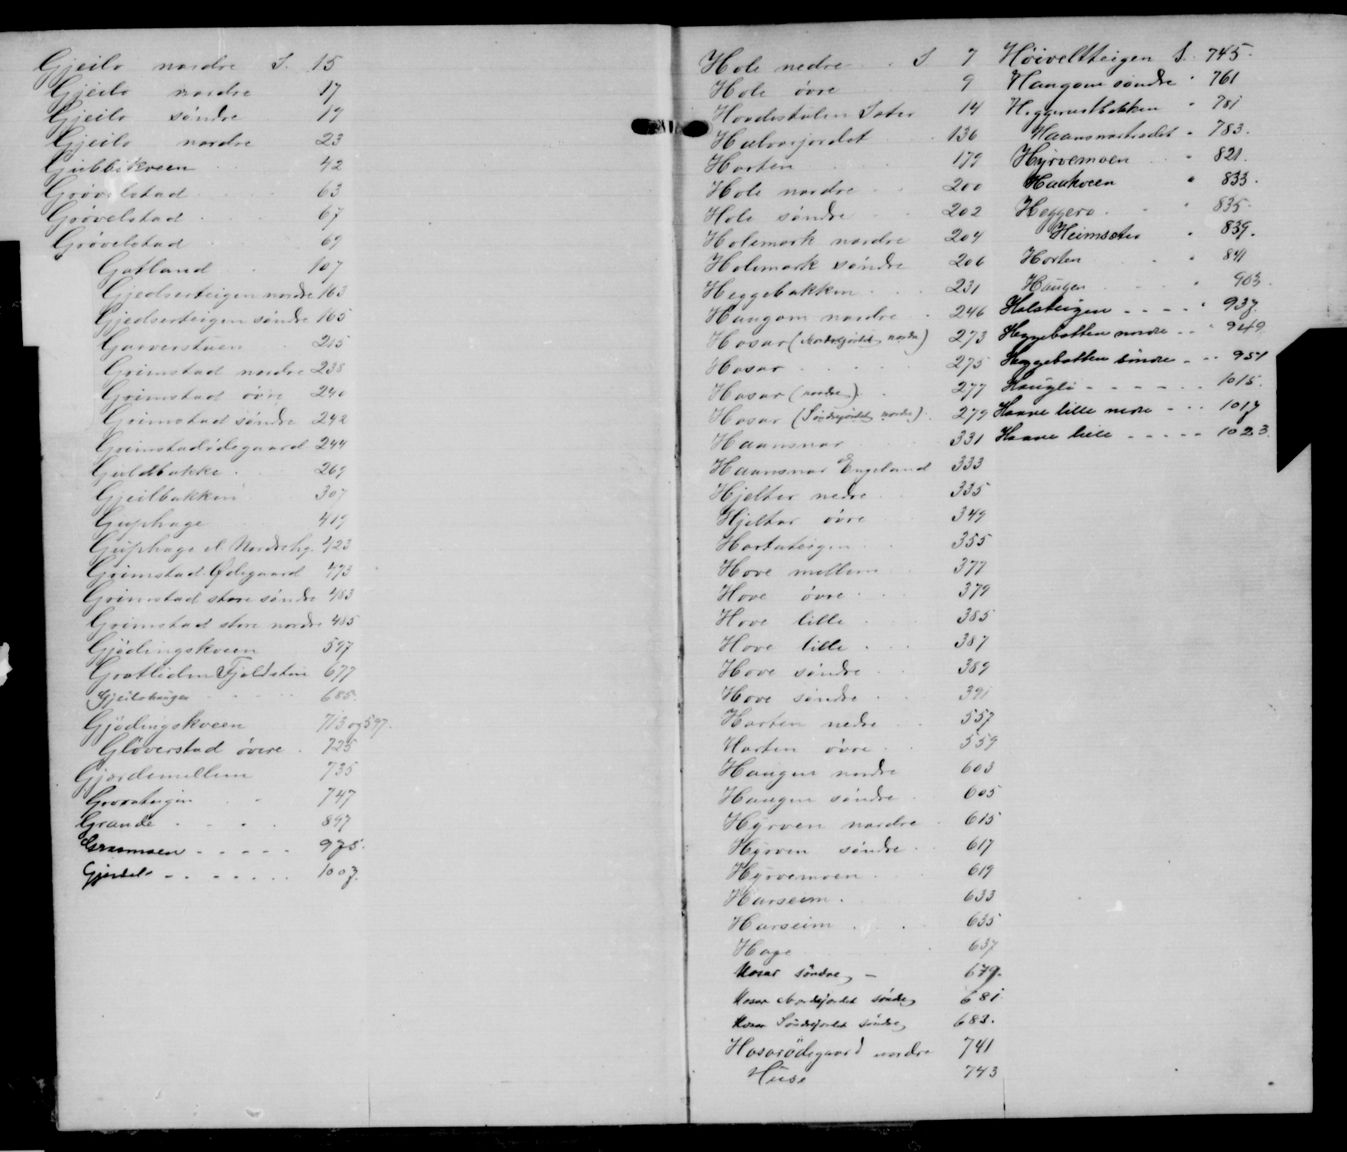 Gjeilo nordre S. 15
Gjeilo nordre 17
Gjeilo søndre 19
Gjeilo nordre 23
Gubbikveen 42
Grøvelstad 63
Grøvelstad 67
Grøvelstad 69
Gatland 107
Gjedserteigen nordre 163
Gjedserteigen søndre 165
Garverstuen 215
Grimstad nordre 238
Grimstad øvre 240
Grimstad søndre 242
Grimstadødegaard 244
Guldbakke 269
Gjeilbakken 307
Guphage 419
Guphage el. 423
Grimstad Ødegaard 473
Grimstad store søndre 483
Grimstad store nordre 485
Gjødingskveen 597
Grotlien Fjeldstue 677
Gjeilohaugen 685.
Gjødingskveen 713 og 597.
Gløverstad övre 725
Gjordemellem 735
747
Grande 897
Grasmoen 975.
1007.
Hole nedre S 7
Hole øvre 9
Hordestolen Sæter 14
Halvorjordet 136
Horten 179
Hole nordre 200
Hole søndre 202
Holemork nordre 204
Holemork søndre 206
Heggebakken 231
Haugom nordre 246
Hosar (Nordrejordet nordre) 273
Hosar 275
Hosar (nordre) 277
Hosar (Søndrejordet nordre) 279
Haansnar 331
Haansnar Engeland 333
Hjeltar nedre 335
Hjeltar øvre 349
Hortateigen 355
Hove mellem 377
Hove øvre 379
Hove lille 385
Hove lille 387
Hove søndre 389
Hove søndre 391
Horten nedre 557
Horten øvre 559
Haugen nordre 603
Haugen søndre 605
Hyrven nordre 615
Hyrven søndre 617
Hyrvemoen 619
Harseim 633
Harseim 635
Hage 637
Hosar søndre 679.
Hosar Nordrejordet søndre 681
Hosar Søndrejordet søndre 683.
Hosarødegaard nordre 741
Huse 743
Høiveltteigen S. 745.
Haugom søndre 761
Heggerustbakken 781
Haansnartrædet 783.
Hyrvemoen 821.
Haukveen 833.
Heggera 835.
Heimsæter 839.
Horten 841
Haugen 903.
Holsteigen 937.
Heggebotten nordre 949
Heggebotten søndre 951
Haugli 1015.
Haave lille nedre 1017
Haave lille 1023.